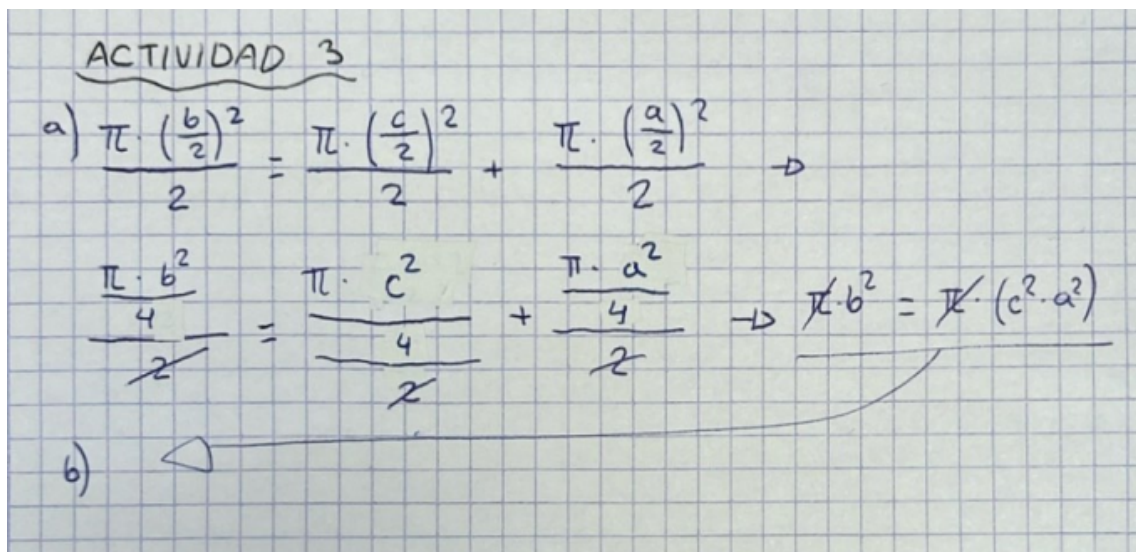 ACTIVIDAD 3
a) π · (b/2)² / 2 = π · (c/2)² / 2 + π · (a/2)² / 2 →
π · b² / 4 / 2 = π · c² / 4 / 2 + π · a² / 4 / 2 → π · b² = π · (c² · a²)
b)